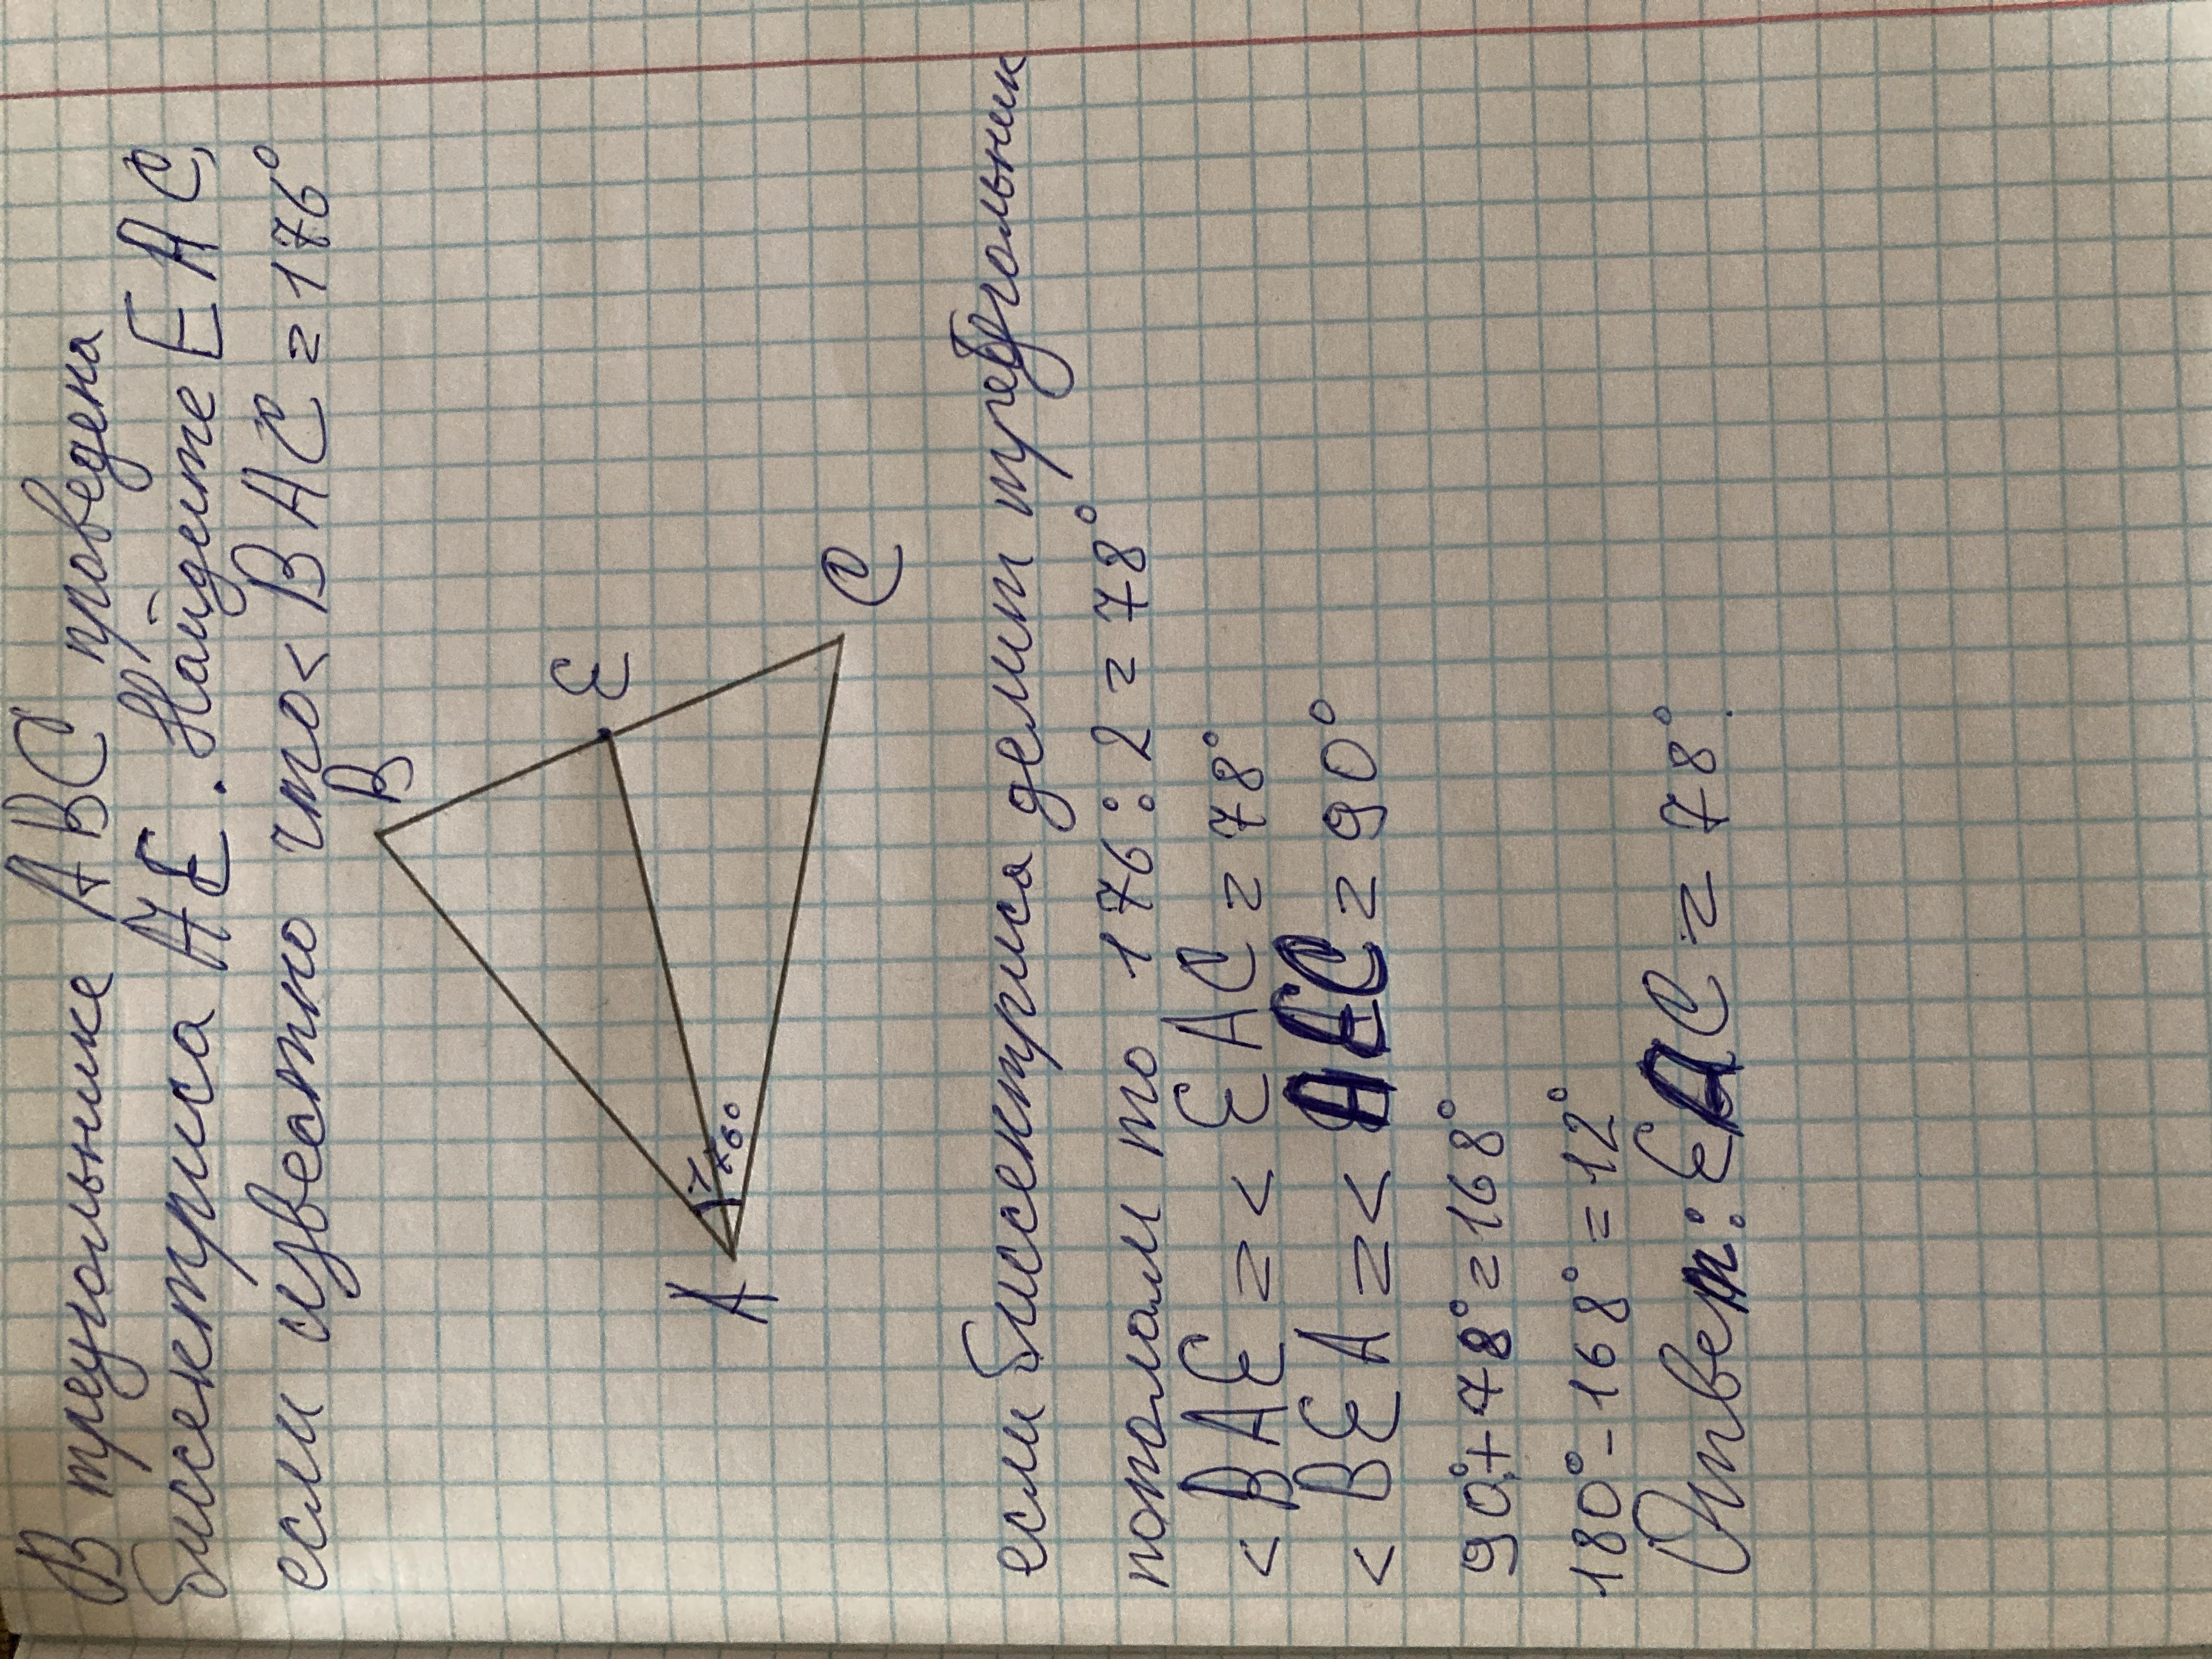 В треугольнике ABC проведена
биссектриса AE. Найдите EAC,
если известно что < BAC = 176°
B
E
A
176°
C
если биссектриса делит треугольник
пополам то 176:2 = 78°
< BAE = < EAC = 78°
< BEA = < AEC = 90°
90°+78°=168°
180°-168°=12°
Ответ: EAC = 78°.